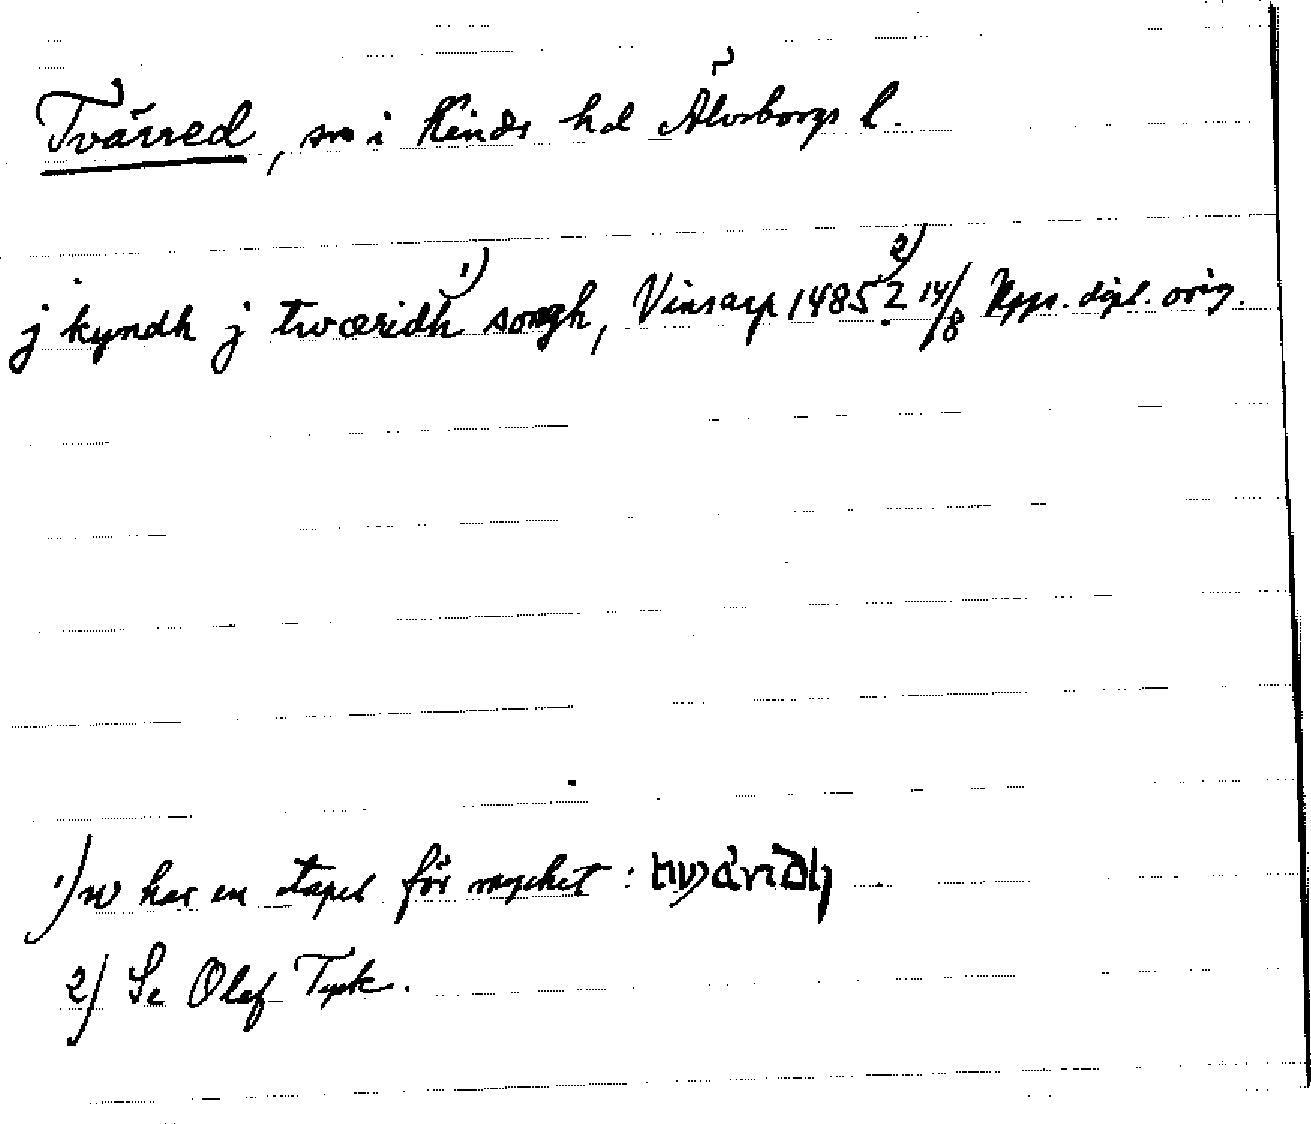 Tvärred, sn i Kinds hd Älvsborgs l.
j kyndh j twæridh 1) songh, Vinsarp 1485? 2) 14/8 Upps. dipl. orig.
1) w har en stapel för mycket: twäridh
2) Se Olof Tysk.